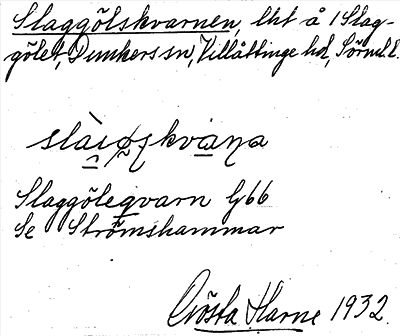 Slaggölskvarnen, lht å 1 Slag-
gölet, Dunkers sn, Villåttinge hd, Sörml. l.
Slaggöleqvarn G66
Se Strömshammar
Gösta Harne 1932.